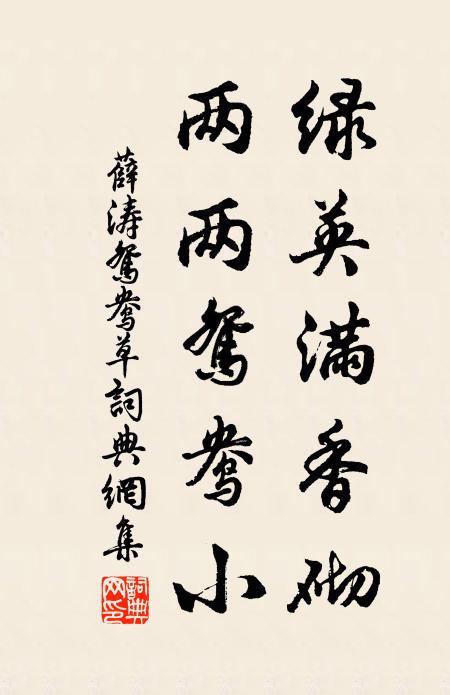 绿英满香砌
两两鸳鸯小
薛涛鸳鸯草词典网集
词典网印